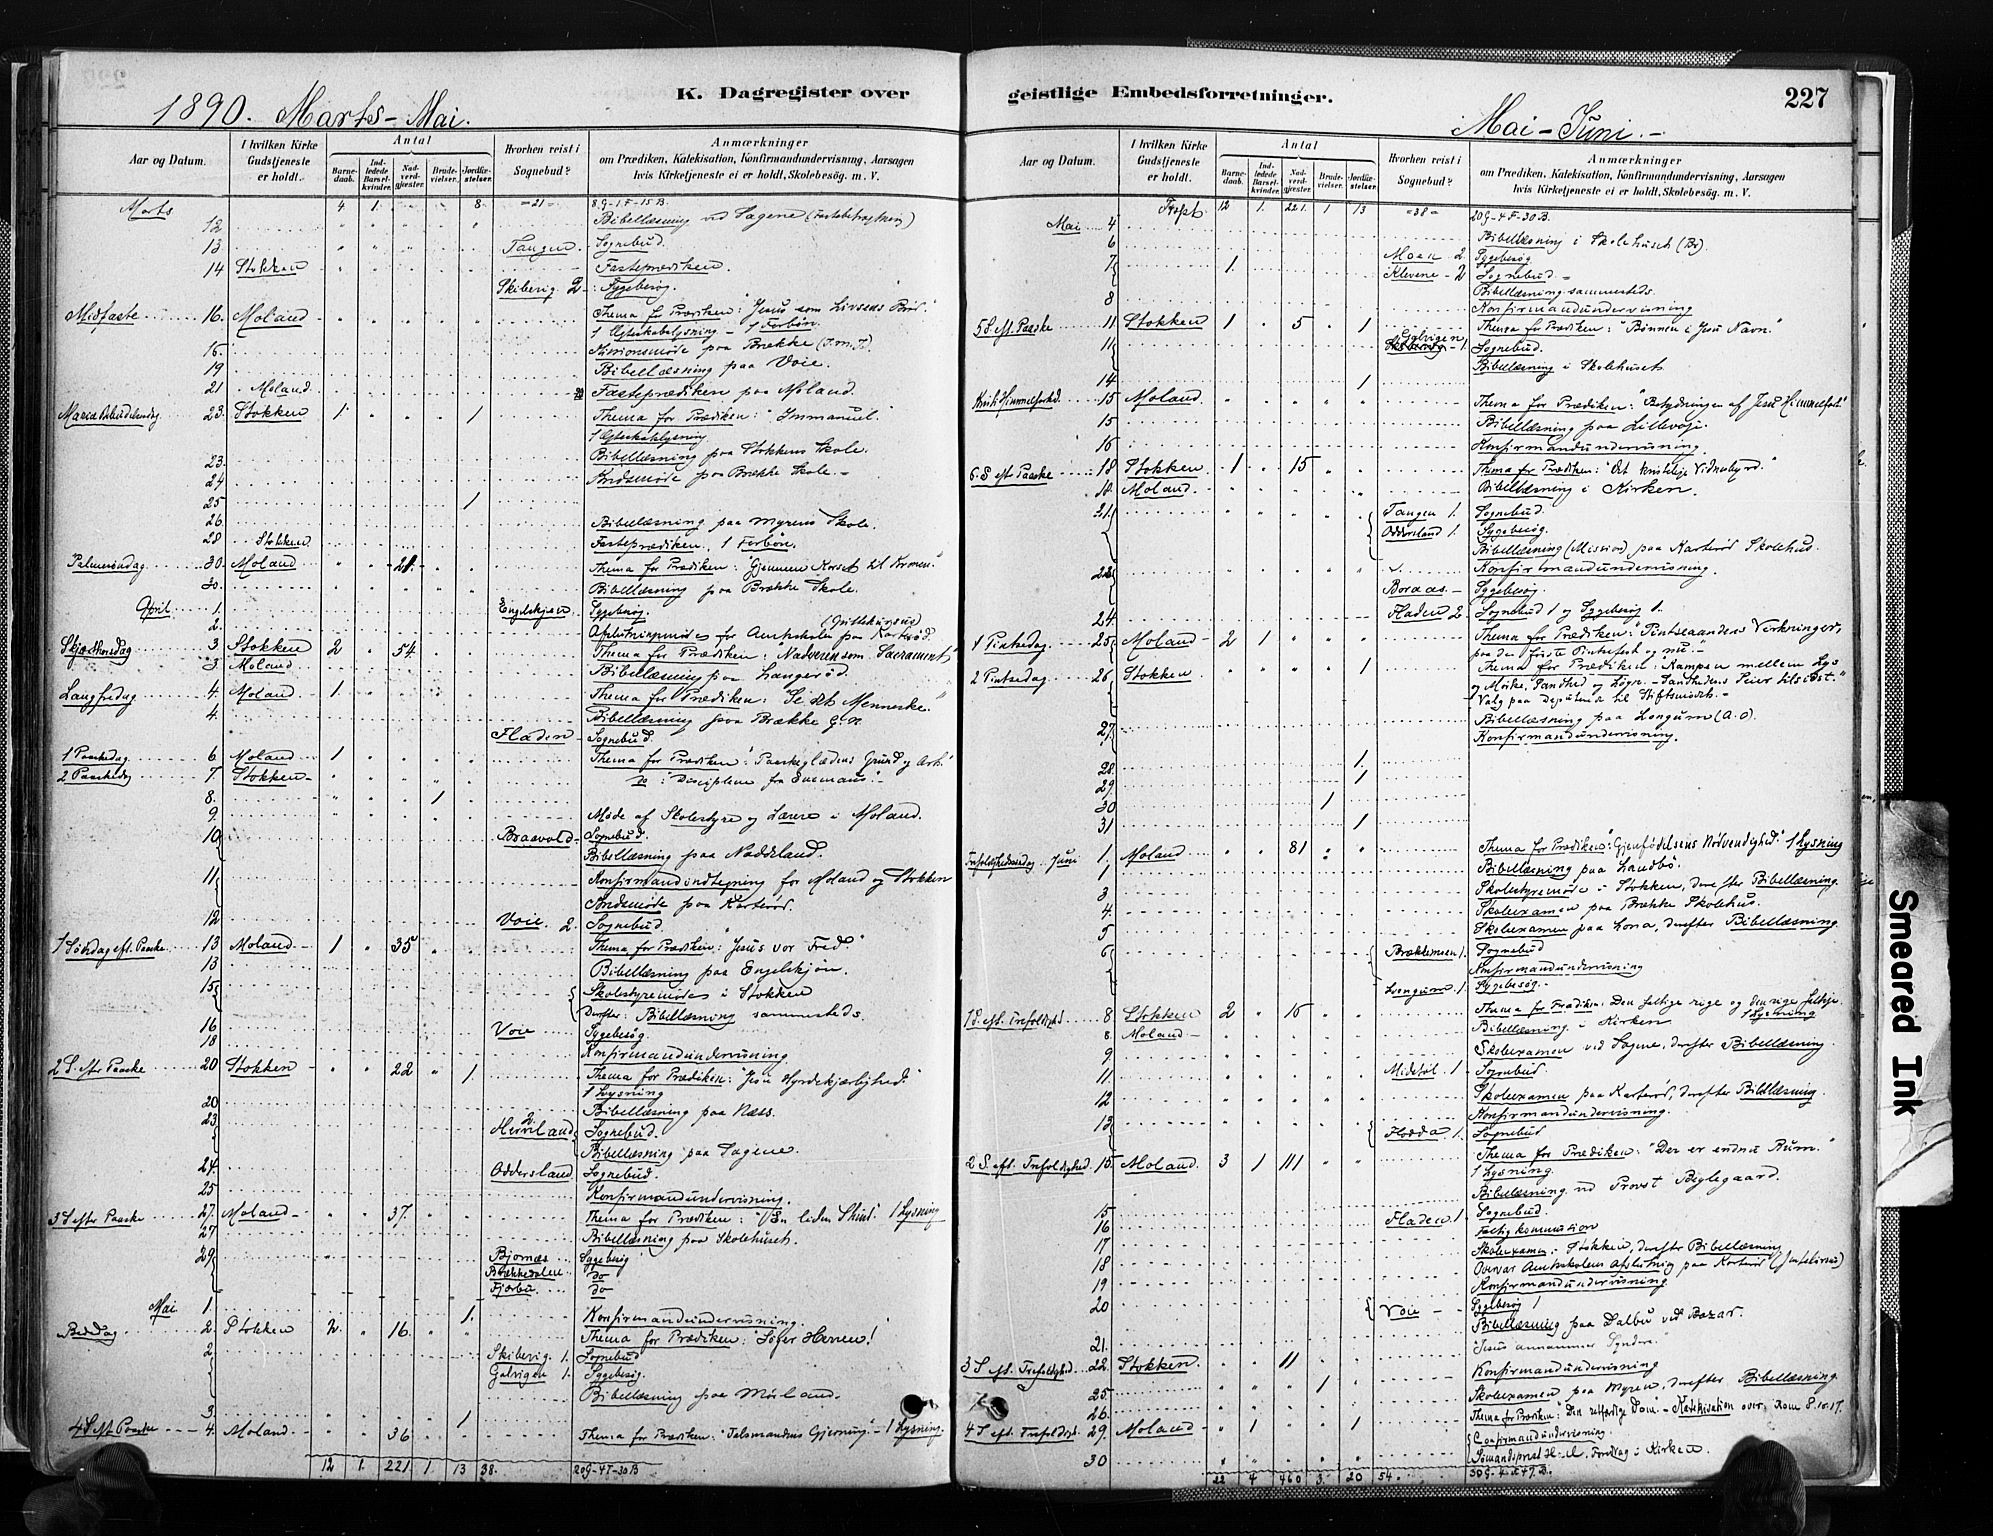 K. Dagregister over
1890. Marts - Mai.
Aar og Datum.
I hvilken Kirke Gudstjeneste er holdt.
Antal
Barnedaab.
Indledede Barselkvinder.
Nadverdgjester.
Brudevielser.
Jordfæstelser.
Hvorhen reist i Sognebud?
Anmærkninger
om Prædiken, Katekisation, Konfirmandundervisning, Aarsagen
hvis Kirketjeneste ei er holdt, Skolebesög. m. V.
Marts 4 1 8 =21= 8.G-1.F-15B.
12 Bibellæsning ved Sagene
13 Tangen Sognebud.
14 Stokken Fasteprædiken.
Skiberig 2 Sygebesøg.
Midfaste 16 Moland Thema for Prædiken: "Jesus som Livsens Brød."
1 Ægteskabslysning - 1 Forbøn.
16. Missionsmøde paa Brække
19 Bibellæsning paa Voie.
21 Moland Fasteprædiken paa Moland.
Mariæ Bebudelsesdag 23. Stokken 1 1 Thema for Prædiken: "Immanuel."
1 Ægteskabslysning
23. Bibellæsning paa Stokkens Skole.
24 paa Brække Skole.
25 1
26. Bibellæsning paa Myrens Skole.
28 Stokken Fasteprædiken. 1 Forbøn.
Palmesøndag 30. Moland 21 Thema for Prædiken: "Gjennem Korset til Kronen."
30. Bibellæsning paa Brække Skole.
April 1. Engelskjøn Sygebesøg.
2. for Amtsskolen paa Karterød.
Skjærthorsdag 3. Stokken 2 54 Thema for Prædiken: "Nadveren som Sacrament"
3 Moland Bibellæsning paa Langerød.
Langfredag 4. Moland 1 Thema for Prædiken: "Se det Menneske."
4. Bibellæsning paa Brække
Fladen Sognebud.
1 Paaskedag 6 Moland 1 Thema for Prædiken: "Paaskeglædens Grund og Art."
2 Paaskedag 7. Stokken do "Disciplene fra Emmaus".
8. 1
9. Møde af Skolestyre og Lærere i Moland.
10 Braavold Sognebud.
Bibellæsning paa Naddeland.
11 Konfirmandindtegning for Moland og Stokken
paa Karterød.
12 Voie 2. Sognebud
1 Søndag eft. Paaske 13 Moland 1 35 Thema for Prædiken: "Jesus vor Fred."
13 Bibellæsning paa Engelskjøn.
15 Skolestyremøde i Stokken
Derefter: Bibellæsning sammesteds.
16 Voie Sygebesøg
18 Konfirmandundervisning
2 S. efter Paaske 20 Stokken 22 1. Thema for Prædiken: "Jesu Hyrdekjærlighed."
1 Lysning
20 Bibellæsning paa Næss.
23. 2 Sognebud.
Bibellæsning paa Sagene.
24. Oddersland Sognebud.
25 Konfirmandundervisning.
3 S efter Paaske 27. Moland 37. Thema for Prædiken: "En liden Stund" 1 Lysning
27 Bibellæsning paa Skolehuset.
29 Bjornæs Sygebesøg
Brækkedalen do
Fjærbu do
Mai 1. 1. Konfirmandundervisning.
Beddag 2. Stokken 2. 16. Thema for Prædiken: "Søger Herren!
2 Skiberig 1. Sognebud
Galvigen 1. Sygebesøg.
Bibellæsning paa Mørland.
3 1
4 S eft Paaske 4. Moland 36 Thema for Prædiken: "Talsmandens Gjerning." - 1 Lysning.
12 1. 221. 1 13 38. 20G-4F-30B
geistlige Embedsforretninger.
227
Mai - Juni. -
Aar og Datum.
I hvilken Kirke Gudstjeneste er holdt.
Antal
Barnedaab.
Indledede Barselkvinder.
Nadverdgjester.
Brudevielser.
Jordfæstelser.
Hvorhen reist i Sognebud?
Anmærkninger
om Prædiken, Katekisation, Konfirmandundervisning, Aarsagen
hvis Kirketjeneste ei er holdt, Skolebesög, m. V.
Trspt. 12 1. 221. 1 13 =38= 20G-4F-30B.
Mai 4
6 Bibellæsning i Skolehuset (Br).
7 1. Moen 2. Sygebesøg
Klevene - 2 Sognebud =
Bibellæsning sammesteds.
8 Konfirmandundervisning
5 S. eft. Paaske 11 Stokken 1 5 1 Thema for Prædiken: "Bønnen i Jesu Navn."
11 Galvigen 1. Sognebud.
Bibellæsning i Skolehuset
14 1
Kristi Himmelfartsd. 15 Moland Thema for Prædiken: "Betydningen af Jesu Himmelfart"
15 Bibellæsning paa Lillevoje.
16 Konfirmandundervisning.
6. S eft Paaske 18 Stokken 1 15 Thema for Prædiken: "Det kristelige Vidnesbyrd."
18 Moland Bibellæsning i Kirken.
21. Tangen 1. Sognebud.
Oddersland 1. Sygebesøg.
Bibellæsning (Mission) paa Karterød Skolehus.
22 Konfirmandundervisning.
Boraas Sygebesøg.
24. Fladen 2 Sognebud 1 og Sygebesøg 1.
1 Pintsedag 25 Moland 2 1 Thema for Prædiken: "Pintseaandens Virkninger,
paa den første Pintsefest og nu".
2 Pintsedag 26 Stokken 1 Thema for Prædiken: "Kampen mellem Lys
og Mørke, Sandhed og Løgn - Sandhedens Seier tilsidst."
Valg paa Deputerede til Stiftsmødet.
27. Bibellæsning paa Longum (A.O).
Konfirmandundervisning.
28. 1.
29 1
30 1
31 1
Trefoldighedssøndag Juni 1. Moland 81 Thema for Prædiken: "Gjenfødelsens Nødvendighed" 1 Lysning
1 Bibellæsning paa Landbø.
3 Skolestyremøde i Stokken, derefter Bibellæsning.
4. Skolexamen paa Brække Skolehus.
5 Skolexamen paa Lona, derefter Bibellæsning
6 1. Sognebud
Konfirmandundervisning
Longum 1. Sygebesøg.
1 S. eft. Trefoldighed 8 Stokken 2 16 Thema for Prædiken: Den fattige rige og den rige fattige.
1 Lysning
8. Moland Bibellæsning i Kirken
9 Skolexamen ved Sagene, derefter Bibellæsning
11. 1 Sognebud
12 Skolexamen paa Karterød, derefter Bibellæsning.
13 Konfirmandundervisning.
Flodda 1. Sognebud
2 S. eft. Trefoldighed. 15. Moland. 3 1 111 Thema for Prædiken: "Der er endnu Rum."
1 Lysning.
Bibellæsning ved Provst Beglegaard.
15 Fladen 1 Sognebud.
16
17 Skolexamen i Stokken, derefter Bibellæsning
18 Overvar Amtsskolens Afslutning paa Karterød
19 Konfirmandundervisning
20 Voie Sygebesøg 1
Bibellæsning paa Dalbu ved Bazar.
21. "Jesus annammer Syndere"
3 S eft. Trefoldighed. 22. Stokken. 11 Konfirmandundervisning
25. 1 Skolexamen paa Myren, derefter Bibellæsning
26.
4 S eft. Trefoldight. 29. Moland 1 1 Thema for Prædiken: "Den retfærdige Dom." - Katekisation over Rom 8.
Confirmandundervisning.
30 Sømandsprest Foredrag i Kirken.
22 4 460 3. 20 54.
Smeared Ink